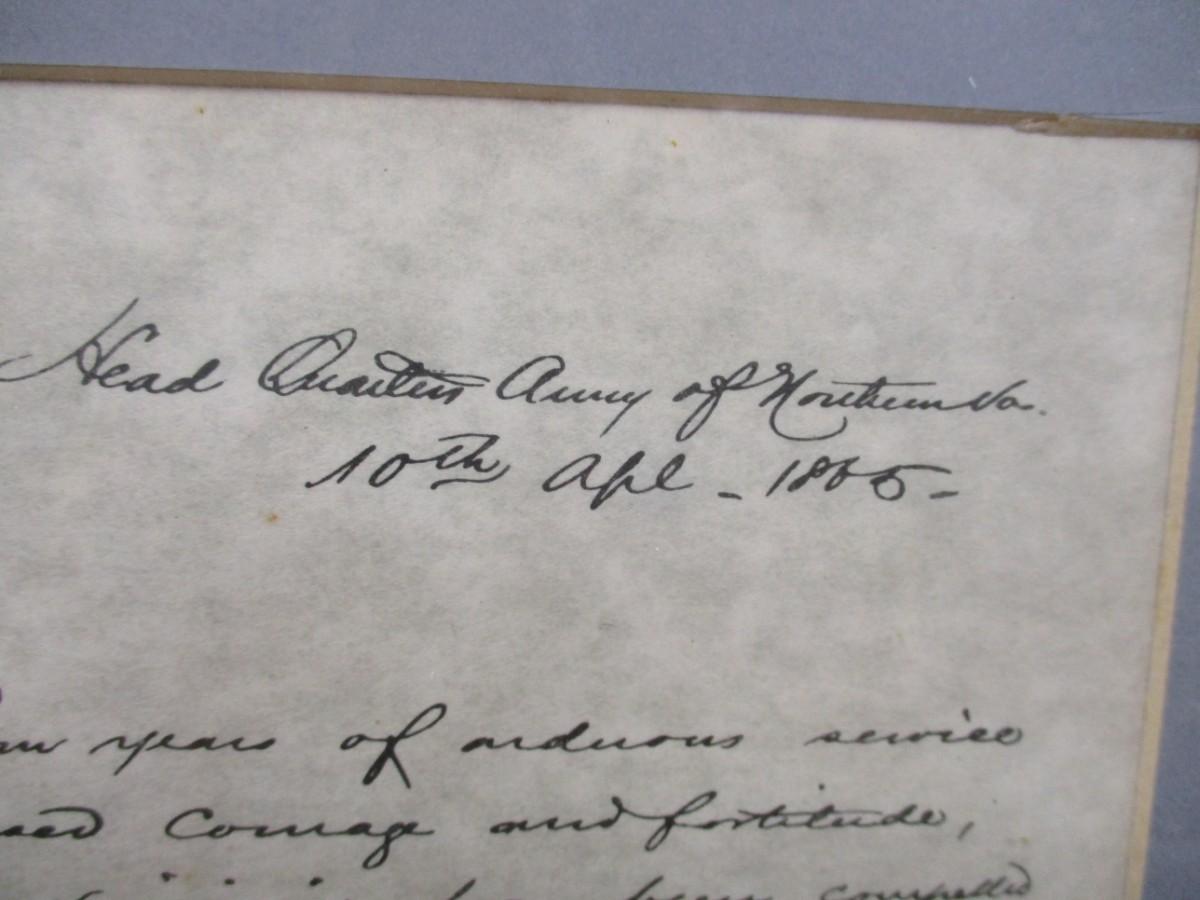 Head Quarters Army of Northern Va.
10th Apl - 1865 -
years of arduous service
courage and fortitude,
been compelled